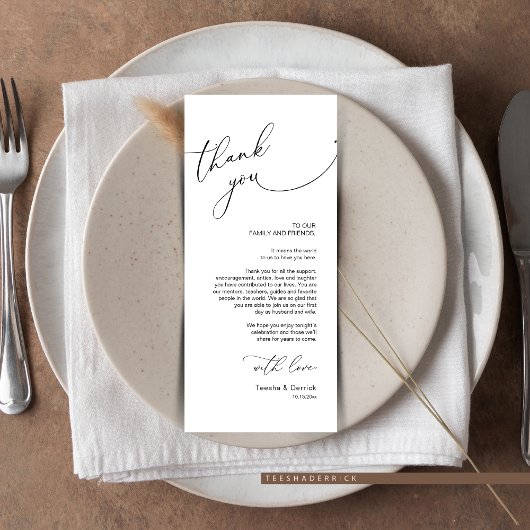 thank
you
TO OUR
FAMILY AND FRIENDS,
It means the world
to us to have you here.
Thank you for all the support,
encouragement, antics, love and laughter
you have contributed to our lives. You are
our mentors, teachers, guides and favorite
people in the world. We are so glad that
you are able to join us on our first
day as husband and wife.
We hope you enjoy tonight's
celebration and those we'll
share for years to come.
with love
Teesha & Derrick
10.13.20xx
TEESHADERRICK